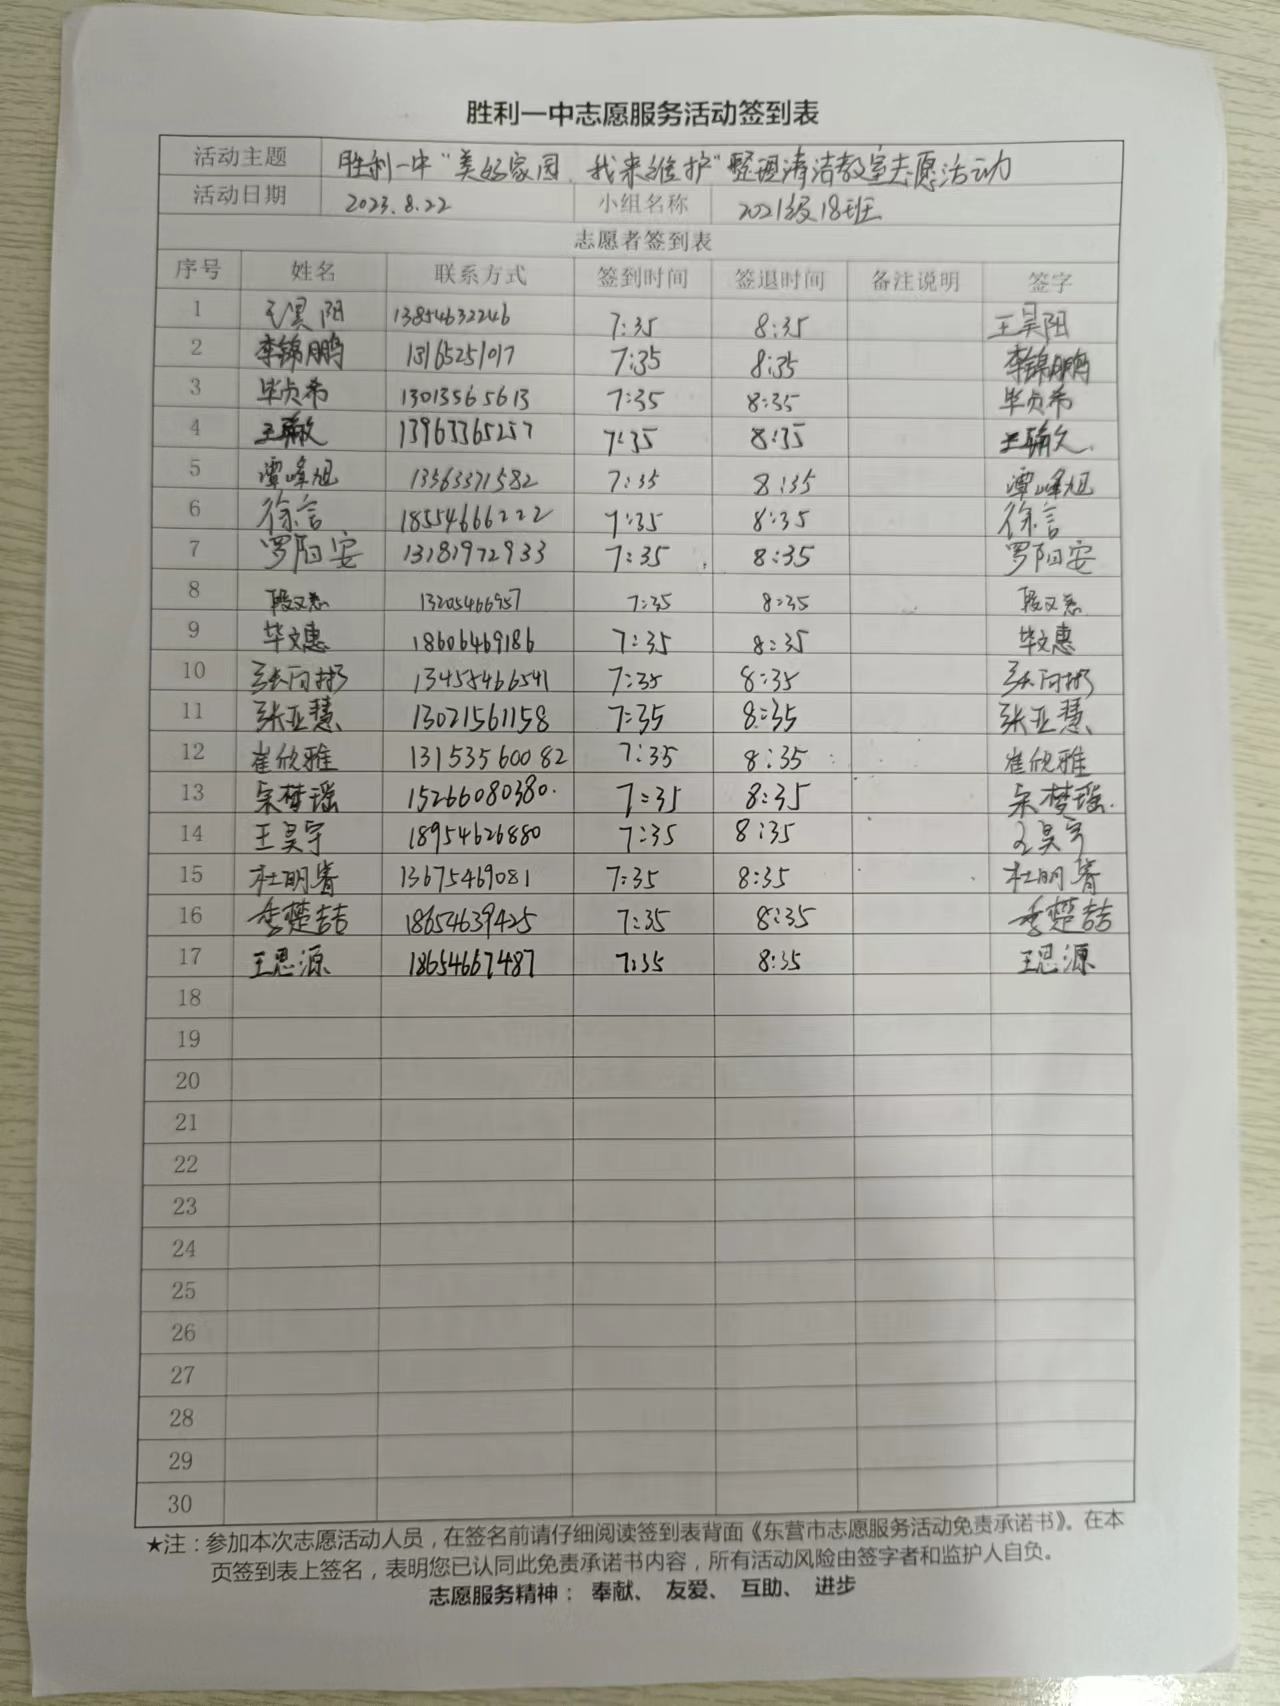 胜利一中志愿服务活动签到表
活动主题 胜利一中“美好家园，我来维护”整理清洁教室志愿活动
活动日期 2023.8.22 小组名称 2021级18班
志愿者签到表
序号 姓名 联系方式 签到时间 签退时间 备注说明 签字
1 王昊阳 13854632246 7:35 8:35 王昊阳
2 李锦鹏 13165251017 7:35 8:35 李锦鹏
3 毕贞希 13013565613 7:35 8:35 毕贞希
4 13963365257 7:35 8:35
5 谭峰旭 13563371582 7:35 8:35 谭峰旭
6 徐言 18554666222 7:35 8:35 徐言
7 罗阳安 13181972933 7:35 8:35 罗阳安
8 13205466957 7:35 8:35
9 毕文惠 18606469186 7:35 8:35 毕文惠
10 13455466541 7:35 8:35
11 张亚慧 13021561158 7:35 8:35 张亚慧
12 崔欣雅 13153560082 7:35 8:35 崔欣雅
13 宋梦瑶 15266080380. 7:35 8:35 宋梦瑶.
14 王昊宇 18954626880 7:35 8:35 王昊宇
15 杜明睿 13675469081 7:35 8:35 杜明睿
16 李楚喆 18654639425 7:35 8:35 李楚喆
17 王思源 18654667487 7:35 8:35 王思源
18
19
20
21
22
23
24
25
26
27
28
29
30
★注：参加本次志愿活动人员，在签名前请仔细阅读签到表背面《东营市志愿服务活动免责承诺书》。在本
页签到表上签名，表明您已认同此免责承诺书内容，所有活动风险由签字者和监护人自负。
志愿服务精神： 奉献、 友爱、 互助、 进步